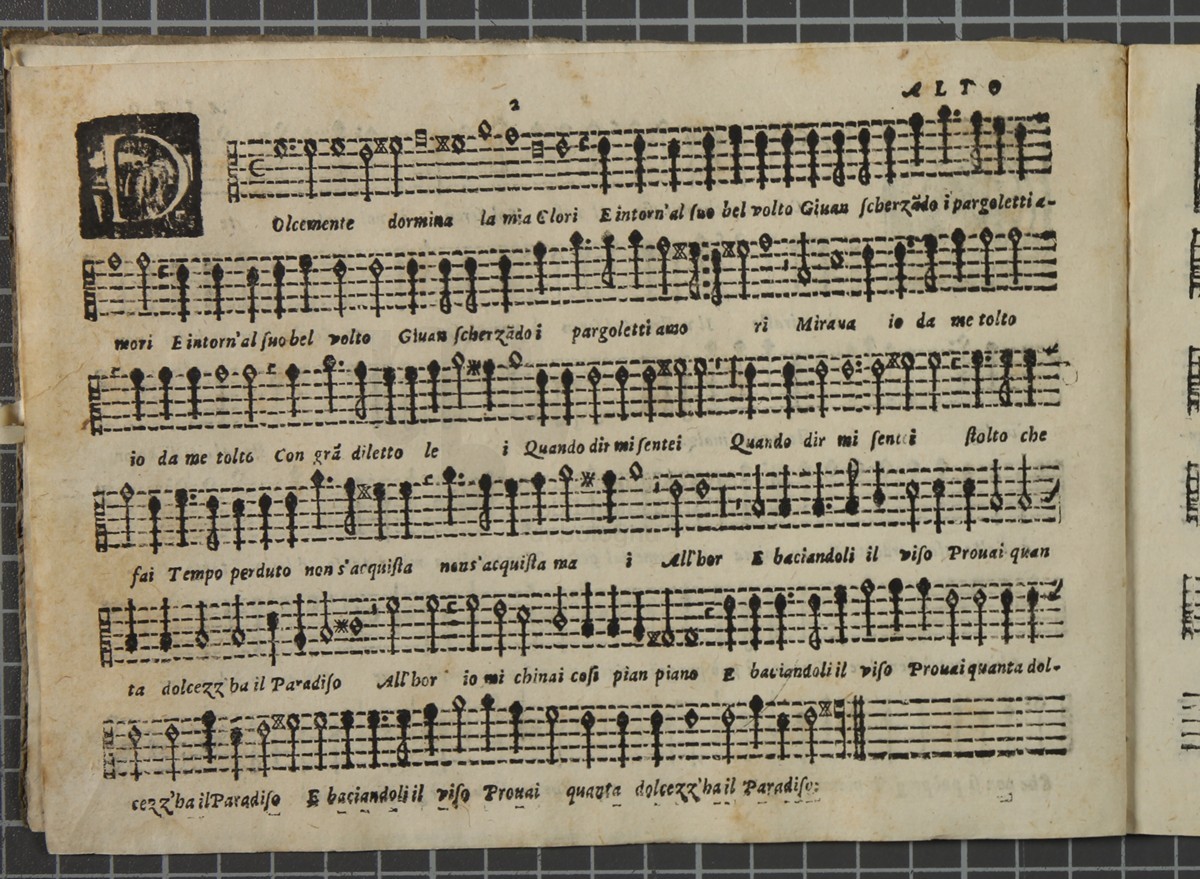 2
ALTO
DOlcemente dormina la mia Clori E intorn'al suo bel volto Giuan scherzãdo i pargoletti a-
mori E intorn'al suo bel volto Giuan scherzãdo i pargoletti amo ri Miraua io da me tolto
io da me tolto Con grã diletto le i Quando dir mi sentei Quando dir mi sentei stolto che
fai Tempo perduto non s'acquista non s'acquista ma i All'hor E baciandoli il viso Prouai quan
ta dolcezz'ha il Paradiso All'hor io mi chinai cosi pian piano E baciandoli il viso Prouai quanta dol-
cezz'ha il Paradiso E baciandoli il viso Prouai quanta dolcezz'ha il Paradiso: